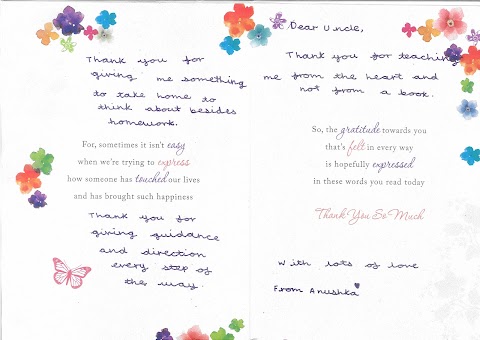 Thank you for
giving me something
to take home to
think about besides
homework.
For, sometimes it isn't easy
when we're trying to express
how someone has touched our lives
and has brought such happiness
Thank you for
giving guidance
and direction
every step of
the way.
Dear Uncle,
Thank you for teaching
me from the heart and
not from a book.
So, the gratitude towards you
that's felt in every way
is hopefully expressed
in these words you read today
Thank You So Much
With lots of love
From Anushka